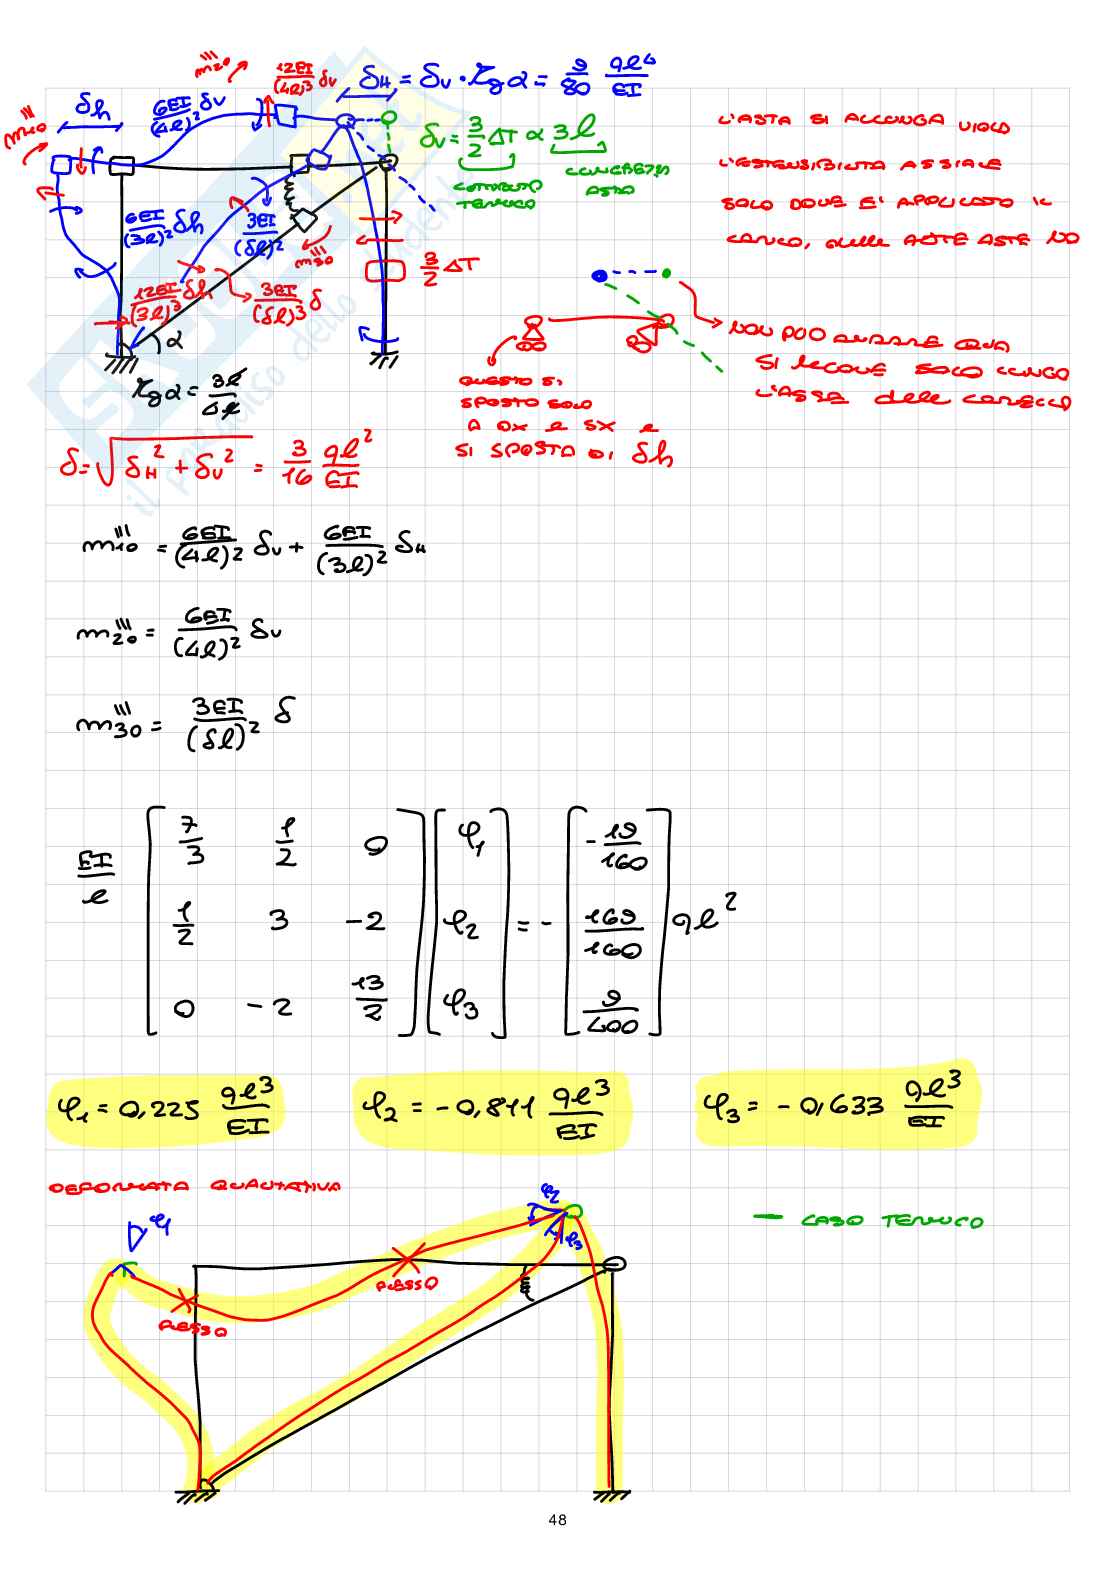 m'''20 12EI/(4l)³ δv δH = δv · tgα = 9/80 ql⁴/EI
δh 6EI/(4l)² δv
m'''10
δv = 3/2 ΔT α 3l
CONTRIBUTO TERMICO
LUNGHEZZA ASTA
L'ASTA SI ALLUNGA VIOLO
L'ESTENSIBILITA ASSIALE
SOLO DOVE E' APPLICATO IL
CARICO, delle ALTRE ASTE NO
6EI/(3l)² δh 3EI/(5l)² m'''30
3/2 ΔT
12EI/(3l)³ δh 3EI/(5l)³ δ
α
tgα = 3l/4l
NON PUO ANDARE QUA
SI MUOVE SOLO LUNGO
L'ASSE delle CARRELLO
QUESTO SI
SPOSTA SOLO
A DX e SX e
SI SPOSTA DI δh
δ = √(δH² + δv²) = 3/16 ql²/EI
m'''10 = 6EI/(4l)² δv + 6EI/(3l)² δH
m'''20 = 6EI/(4l)² δv
m'''30 = 3EI/(5l)² δ
EI/l [7/3 1/2 0] [φ1] = - [-19/160] ql²
[1/2 3 -2] [φ2] [169/160]
[0 -2 13/2] [φ3] [9/400]
φ1 = 0,225 ql³/EI φ2 = -0,811 ql³/EI φ3 = -0,633 ql³/EI
DEFORMATA QUALITATIVA
φ1 φ2 φ3
— CASO TERMICO
FLESSO
FLESSO
il paradiso dello
48